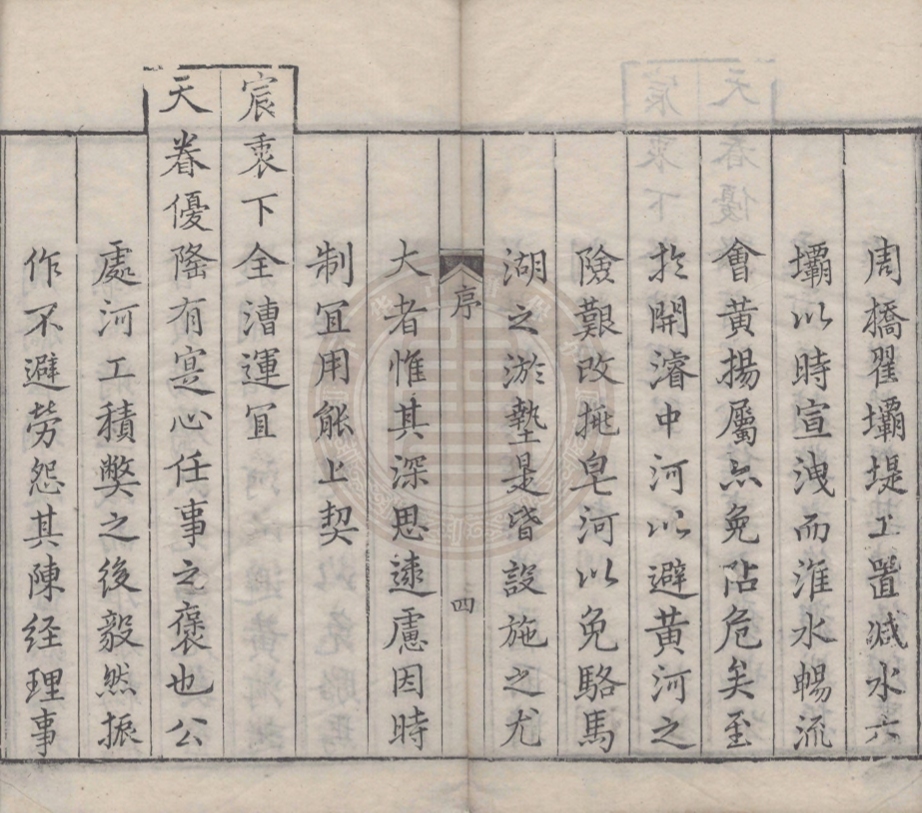 周橋翟壩堤工置減水六
壩以時宣洩而淮水暢流
會黃揚屬亦免阽危矣至
於開濬中河以避黃河之
險艱改挑皂河以免駱馬
湖之淤墊是皆設施之尤
序
四
大者惟其深思遠慮因時
制宜用能上契
宸衷下全漕運宜
天眷優隆有寔心任事之褒也公
處河工積弊之後毅然振
作不避勞怨其陳經理事